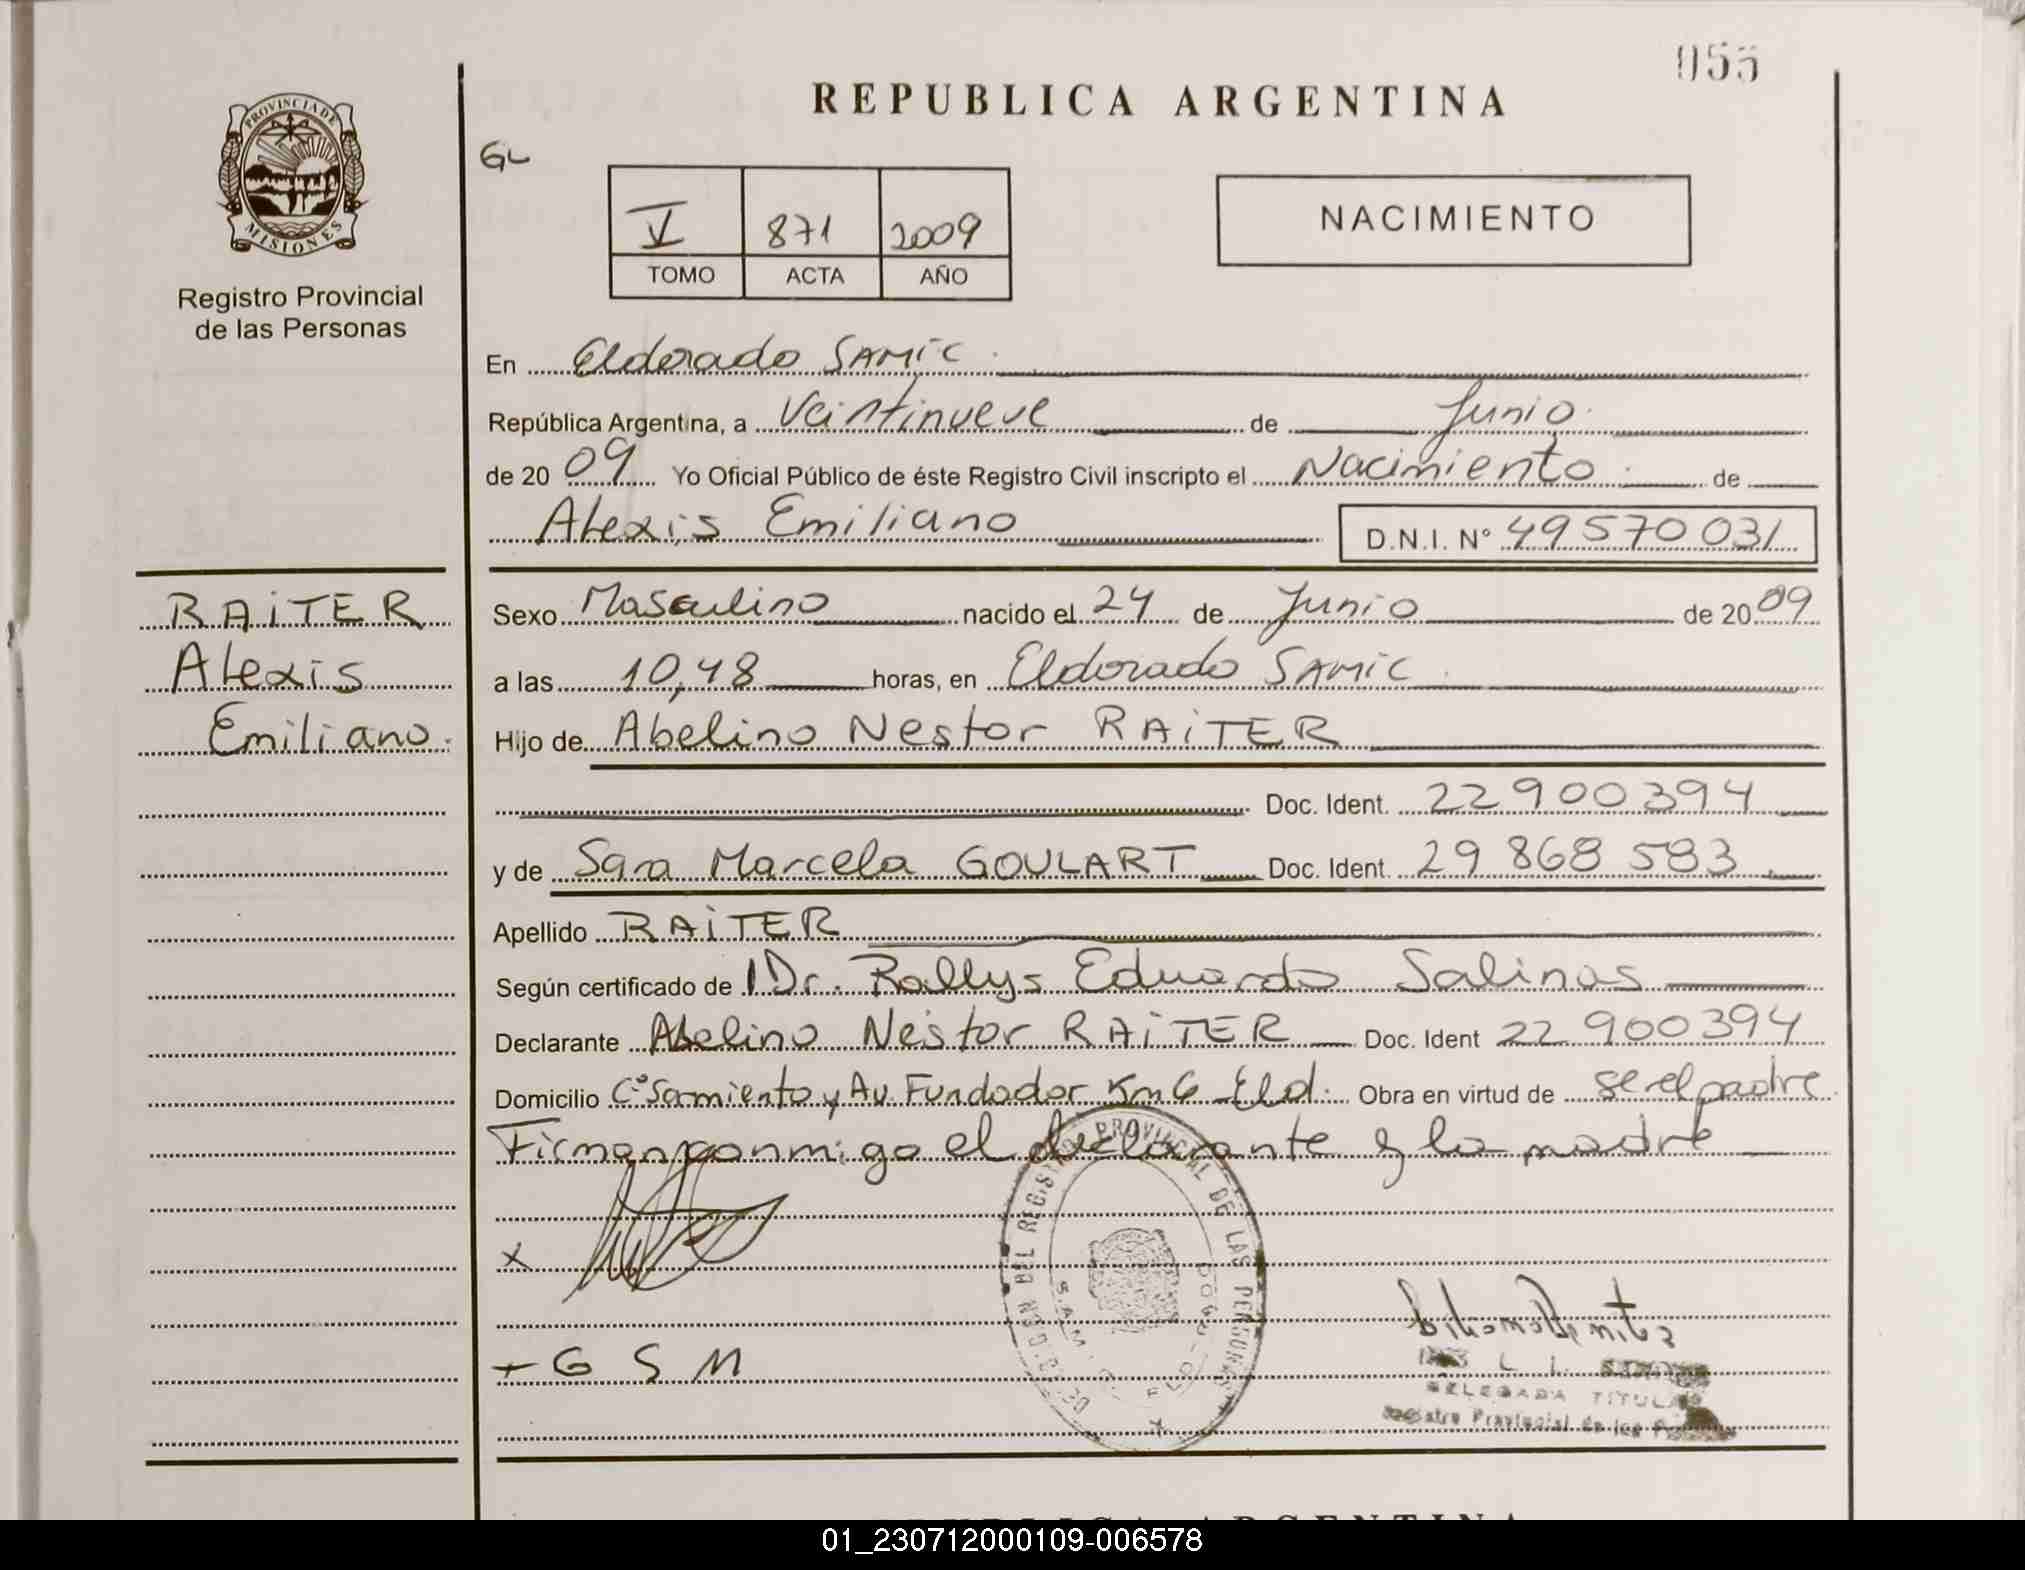 055
REPUBLICA ARGENTINA
PROVINCIA DE
MISIONES
Registro Provincial
de las Personas
GL
V 871 2009
TOMO ACTA AÑO
NACIMIENTO
En Eldorado SAMIC
República Argentina, a Veintinueve de Junio
de 2009 Yo Oficial Público de éste Registro Civil inscripto el Nacimiento de
Alexis Emiliano D.N.I. Nº 49570031
RAITER
Alexis
Emiliano
Sexo Masculino nacido el 24 de Junio de 2009
a las 10,48 horas, en Eldorado SAMIC
Hijo de Abelino Nestor RAITER
Doc. Ident. 22900394
y de Sara Marcela GOULART Doc. Ident. 29868583
Apellido RAITER
Según certificado de Dr. Rallys Eduardo Salinas
Declarante Abelino Nestor RAITER Doc. Ident 22900394
Domicilio Cº Sarmiento y Av. Fundador Km 6 Eld. Obra en virtud de ser el padre
Firman conmigo el declarante y la madre
REGISTRO PROVINCIAL DE LAS PERSONAS
X
+ G S M
DELEGADA TITULAR
Registro Provincial de las
REPUBLICA ARGENTINA
01_230712000109-006578